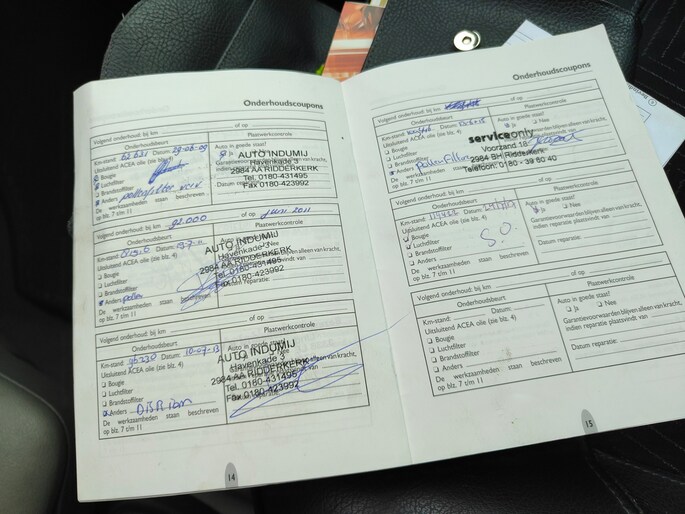 Onderhoudscoupons
Volgend onderhoud: bij km of op
Onderhoudsbeurt Plaatwerkcontrole
Km-stand Datum:
Uitsluitend ACEA olie (zie blz. 4)
Bougie
Luchtfilter
Brandstoffilter
Anders
De werkzaamheden staan beschreven
op blz. 7 t/m 11
Auto in goede staat?
Ja
AUTO INDUMIJ
Havenkade 3
2984 AA RIDDERKERK
Tel. 0180-431495
Fax 0180-423992
Volgend onderhoud: bij km 92.000 of op Juni 2011
Onderhoudsbeurt Plaatwerkcontrole
Km-stand Datum:
Uitsluitend ACEA olie (zie blz. 4)
Bougie
Luchtfilter
Brandstoffilter
Anders
De werkzaamheden staan beschreven
op blz. 7 t/m 11
AUTO INDUMIJ
Havenkade 3
2984 AA RIDDERKERK
Tel. 0180-431495
Fax 0180-423992
Volgend onderhoud: bij km of op
Onderhoudsbeurt Plaatwerkcontrole
Km-stand 96230 Datum: 10-07-13
Uitsluitend ACEA olie (zie blz. 4)
Bougie
Luchtfilter
Brandstoffilter
Anders
De werkzaamheden staan beschreven
op blz. 7 t/m 11
AUTO INDUMIJ
Havenkade 3
2984 AA RIDDERKERK
Tel. 0180-431495
Fax 0180-423992
14
Onderhoudscoupons
Volgend onderhoud: bij km of op
Onderhoudsbeurt Plaatwerkcontrole
Km-stand Datum:
Uitsluitend ACEA olie (zie blz. 4)
Bougie
Luchtfilter
Brandstoffilter
Anders
De werkzaamheden staan beschreven
op blz. 7 t/m 11
Auto in goede staat?
Ja Nee
serviceonly
Voorzand 18
2984 BH Ridderkerk
Telefoon: 0180 - 39 50 40
Volgend onderhoud: bij km of op
Onderhoudsbeurt Plaatwerkcontrole
Km-stand Datum:
Uitsluitend ACEA olie (zie blz. 4)
Bougie
Luchtfilter
Brandstoffilter
Anders
De werkzaamheden staan beschreven
op blz. 7 t/m 11
S.O.
Auto in goede staat?
Ja Nee
Garantievoorwaarden blijven alleen van kracht,
indien reparatie plaatsvindt van
Datum reparatie:
Volgend onderhoud: bij km of op
Onderhoudsbeurt Plaatwerkcontrole
Km-stand: Datum:
Uitsluitend ACEA olie (zie blz. 4)
Bougie
Luchtfilter
Brandstoffilter
Anders
De werkzaamheden staan beschreven
op blz. 7 t/m 11
Auto in goede staat?
Ja Nee
Garantievoorwaarden blijven alleen van kracht,
indien reparatie plaatsvindt van
Datum reparatie:
15